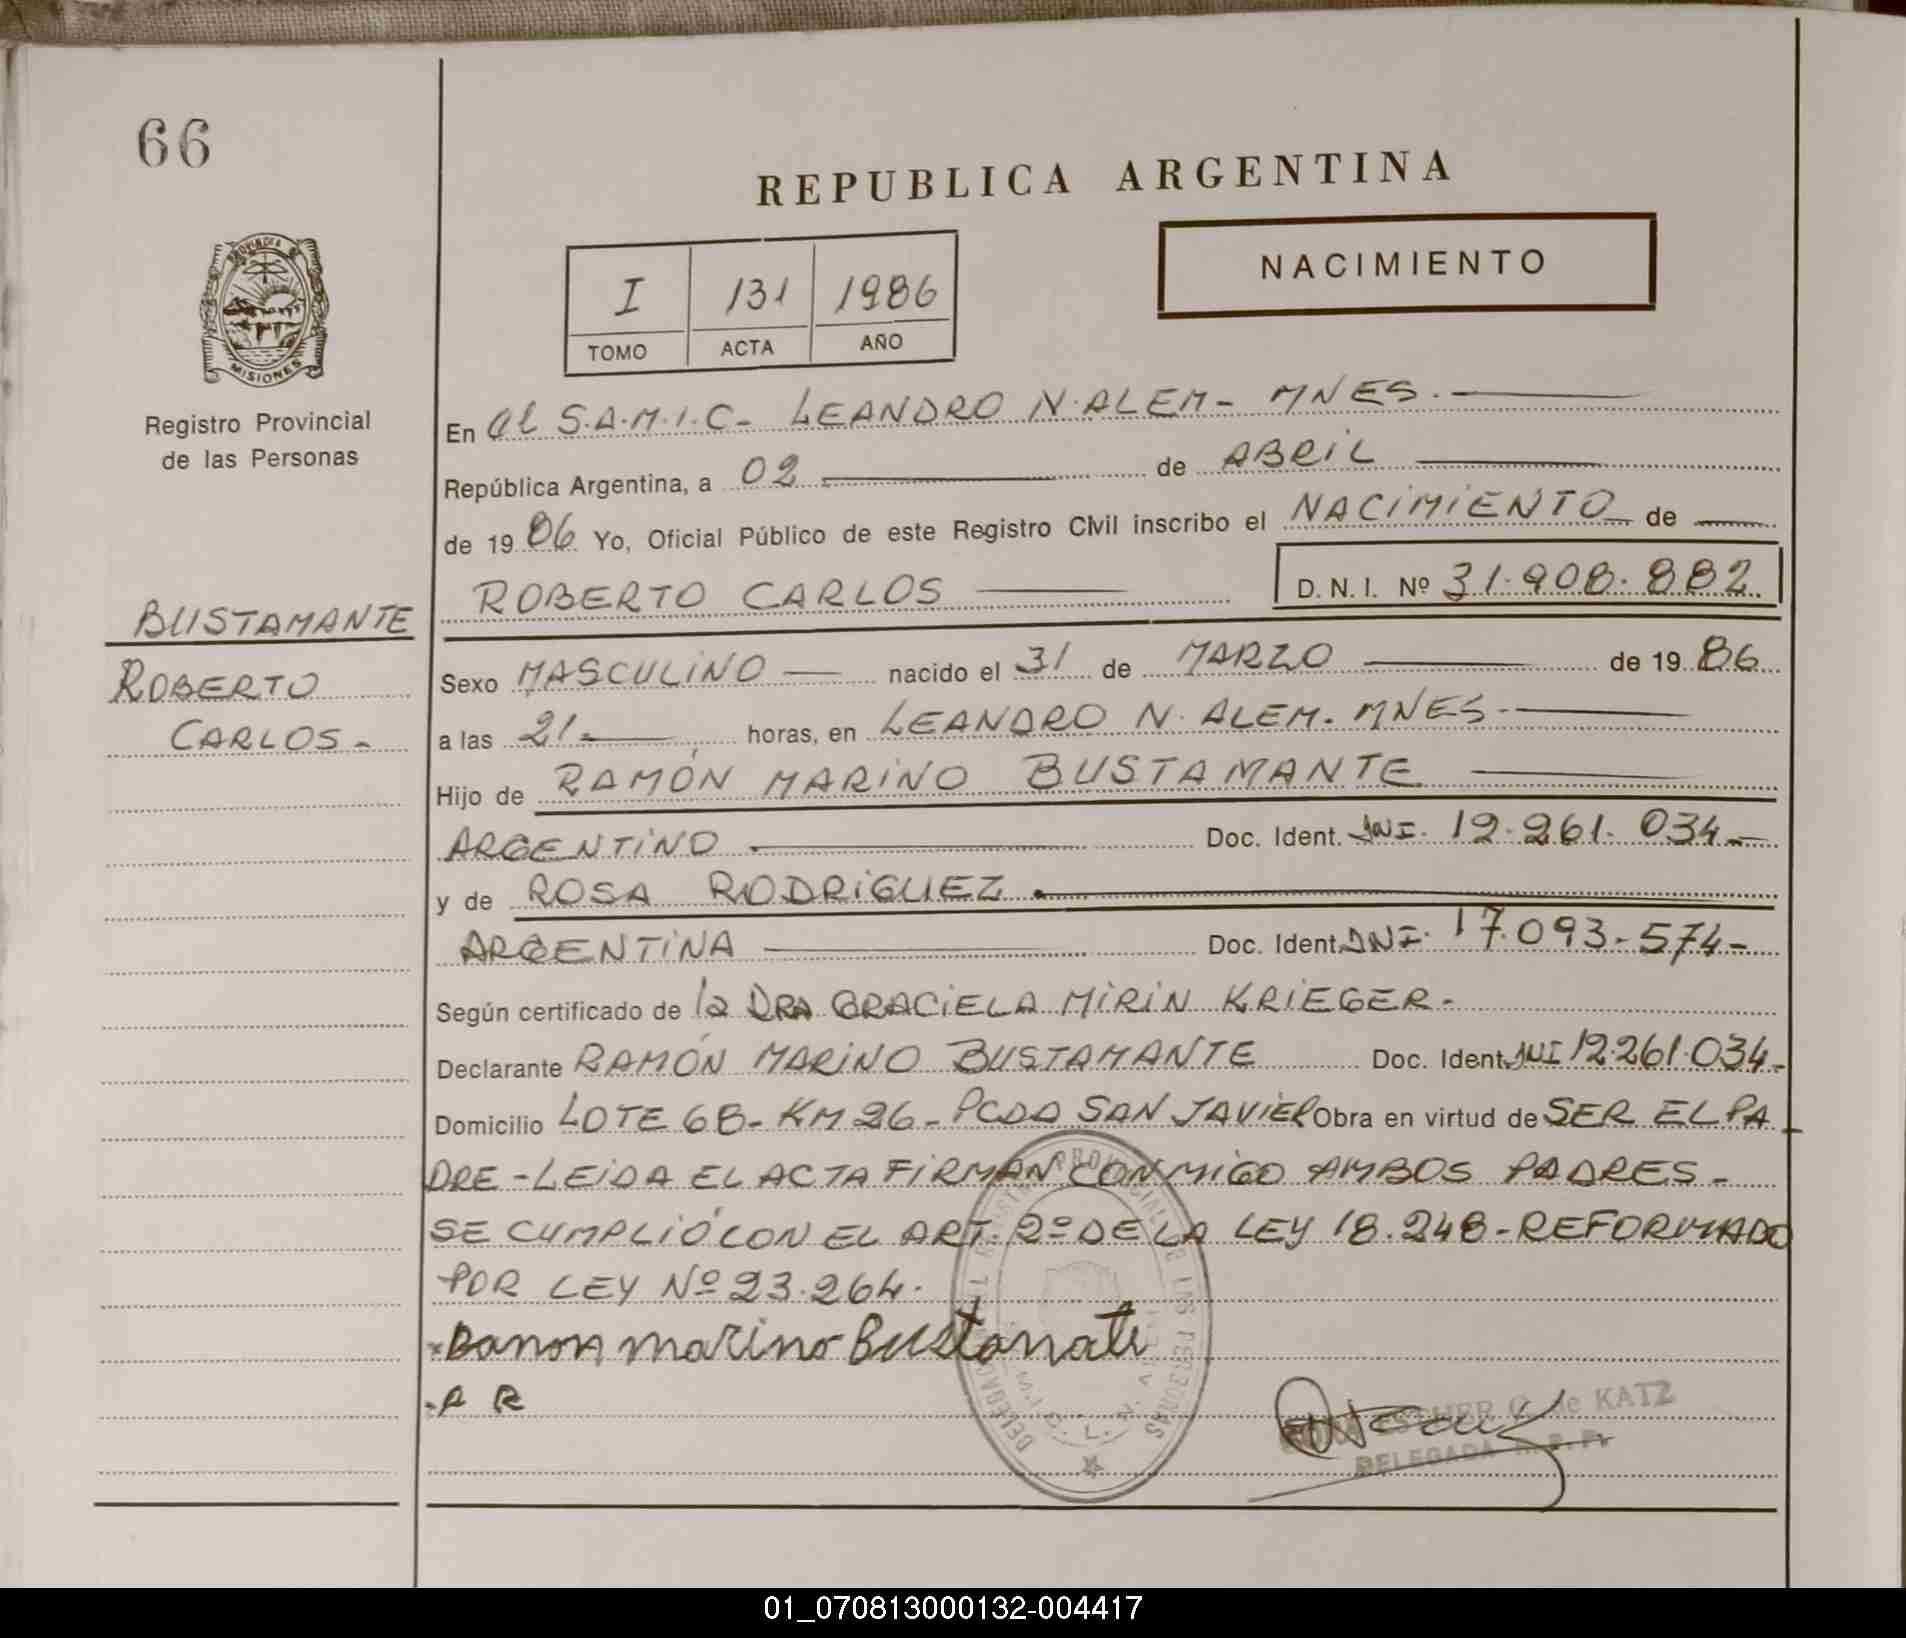 66
REPUBLICA ARGENTINA
NACIMIENTO
I 131 1986
TOMO ACTA AÑO
PROVINCIA DE
MISIONES
Registro Provincial
de las Personas
BUSTAMANTE
ROBERTO
CARLOS-
En el S.A.M.I.C- LEANDRO N. ALEM- MNES.
República Argentina, a 02 de ABRIL
de 1986 Yo, Oficial Público de este Registro Civil inscribo el NACIMIENTO de
ROBERTO CARLOS D.N.I. Nº 31.908.882
Sexo MASCULINO nacido el 31 de MARZO de 1986
a las 21 horas, en LEANDRO N. ALEM. MNES-
Hijo de RAMÓN MARINO BUSTAMANTE
ARGENTINO Doc. Ident. DNI. 12.261.034-
y de ROSA RODRIGUEZ
ARGENTINA Doc. Ident. DNI. 17.093.574-
Según certificado de la DRA GRACIELA MIRIN KRIEGER-
Declarante RAMÓN MARINO BUSTAMANTE Doc. Ident. DNI 12.261.034-
Domicilio LOTE 68- KM 26- PCDA SAN JAVIER Obra en virtud de SER EL PA
DRE - LEIDA EL ACTA FIRMAN CONMIGO AMBOS PADRES-
SE CUMPLIÓ CON EL ART. 2º DE LA LEY 18.248 - REFORMADO
POR LEY Nº 23.264.
Ramon marino Bustamate
R R
ESTHER C. de KATZ
DELEGADA R. P. P.
01_070813000132-004417